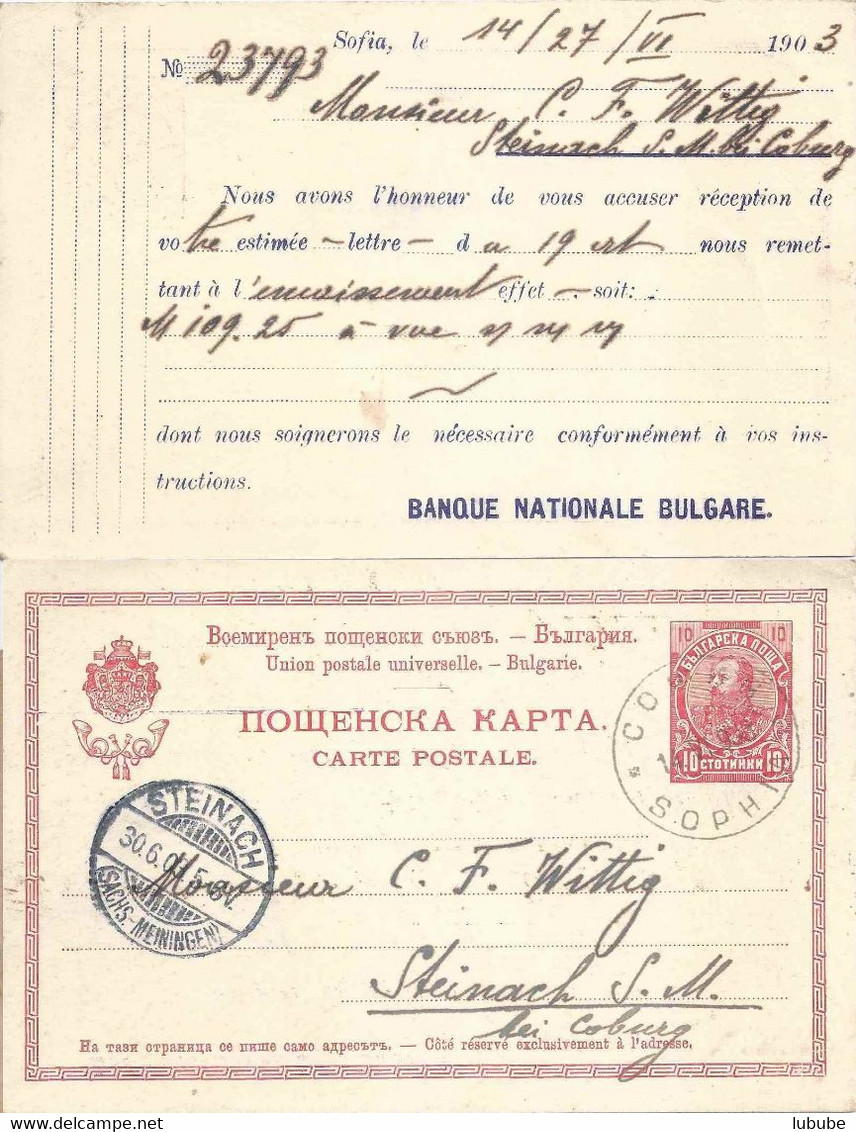 Sofia, le 14/27/VI 1903
№ 23793
Monsieur C. F. Wittig
Steinach S. M. bei Coburg
Nous avons l'honneur de vous accuser réception de
votre estimée – lettre – d u 19 crt nous remet-
tant à l'encaissement effet – soit:
M 109.25 à vue
dont nous soignerons le nécessaire conformément à vos ins-
tructions.
BANQUE NATIONALE BULGARE.
Всемиренъ пощенски съюзъ. – България.
Union postale universelle. – Bulgarie.
ПОЩЕНСКА КАРТА.
CARTE POSTALE.
10 10
БЪЛГАРСКА ПОЩА
10 СТОТИНКИ 10
SOPHI
STEINACH
30.6.
(SACHS-MEININGEN)
Monsieur C. F. Wittig
Steinach S. M.
bei Coburg
На тази страница се пише само адресътъ. – Côté réservé exclusivement à l'adresse.
lubube